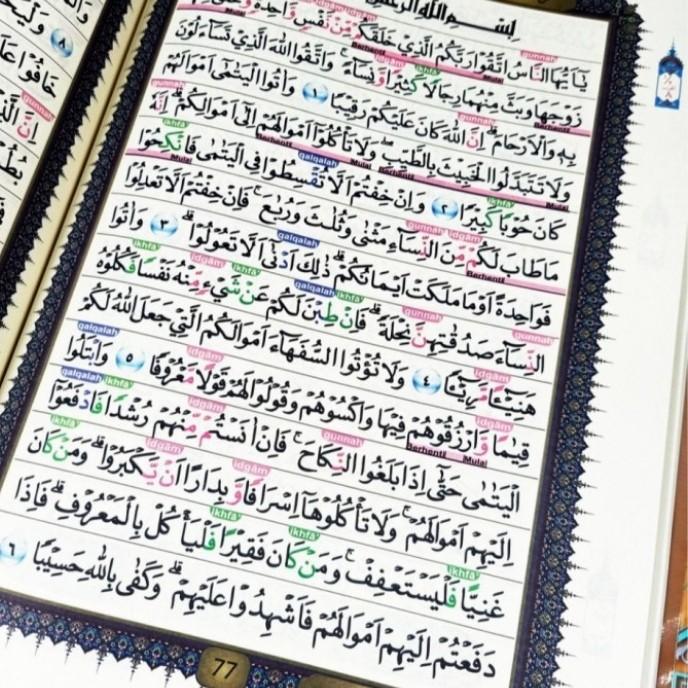 بِسْمِ اللّٰهِ الرَّحْمٰنِ
يٰٓاَيُّهَا النَّاسُ اتَّقُوْا رَبَّكُمُ الَّذِيْ خَلَقَكُمْ مِّنْ نَّفْسٍ وَّاحِدَةٍ وَّخَلَقَ
زَوْجَهَا وَبَثَّ مِنْهُمَا رِجَالًا كَثِيْرًا وَّنِسَاۤءً ۚ وَاتَّقُوا اللّٰهَ الَّذِيْ تَسَاۤءَلُوْنَ
بِهٖ وَالْاَرْحَامَ ۗ اِنَّ اللّٰهَ كَانَ عَلَيْكُمْ رَقِيْبًا ١ وَاٰتُوا الْيَتٰمٰىٓ اَمْوَالَهُمْ
وَلَا تَتَبَدَّلُوا الْخَبِيْثَ بِالطَّيِّبِ ۖ وَلَا تَأْكُلُوْٓا اَمْوَالَهُمْ اِلٰٓى اَمْوَالِكُمْ ۗ اِنَّهٗ
كَانَ حُوْبًا كَبِيْرًا ٢ وَاِنْ خِفْتُمْ اَلَّا تُقْسِطُوْا فِى الْيَتٰمٰى فَانْكِحُوْا
مَا طَابَ لَكُمْ مِّنَ النِّسَاۤءِ مَثْنٰى وَثُلٰثَ وَرُبٰعَ ۚ فَاِنْ خِفْتُمْ اَلَّا تَعْدِلُوْا
فَوَاحِدَةً اَوْ مَا مَلَكَتْ اَيْمَانُكُمْ ۗ ذٰلِكَ اَدْنٰٓى اَلَّا تَعُوْلُوْا ۗ ٣ وَاٰتُوا
النِّسَاۤءَ صَدُقٰتِهِنَّ نِحْلَةً ۗ فَاِنْ طِبْنَ لَكُمْ عَنْ شَيْءٍ مِّنْهُ نَفْسًا فَكُلُوْهُ
هَنِيْۤـًٔا مَّرِيْۤـًٔا ٤ وَلَا تُؤْتُوا السُّفَهَاۤءَ اَمْوَالَكُمُ الَّتِيْ جَعَلَ اللّٰهُ لَكُمْ
قِيٰمًا وَّارْزُقُوْهُمْ فِيْهَا وَاكْسُوْهُمْ وَقُوْلُوْا لَهُمْ قَوْلًا مَّعْرُوْفًا ٥ وَابْتَلُوا
الْيَتٰمٰى حَتّٰىٓ اِذَا بَلَغُوا النِّكَاحَ ۚ فَاِنْ اٰنَسْتُمْ مِّنْهُمْ رُشْدًا فَادْفَعُوْٓا
اِلَيْهِمْ اَمْوَالَهُمْ ۚ وَلَا تَأْكُلُوْهَآ اِسْرَافًا وَّبِدَارًا اَنْ يَّكْبَرُوْا ۗ وَمَنْ كَانَ
غَنِيًّا فَلْيَسْتَعْفِفْ ۚ وَمَنْ كَانَ فَقِيْرًا فَلْيَأْكُلْ بِالْمَعْرُوْفِ ۗ فَاِذَا
دَفَعْتُمْ اِلَيْهِمْ اَمْوَالَهُمْ فَاَشْهِدُوْا عَلَيْهِمْ ۗ وَكَفٰى بِاللّٰهِ حَسِيْبًا ٦
77